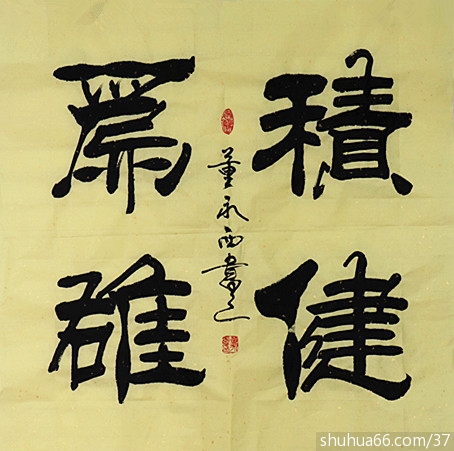 積健
爲雄
董永西書之
shuhua66.com/37